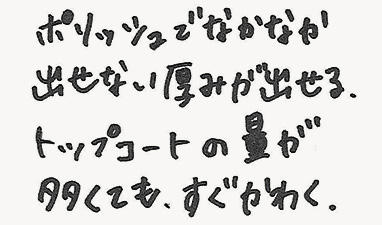 ポリッシュでなかなか
出せない厚みが出せる.
トップコートの量が
多くても、すぐかわく.